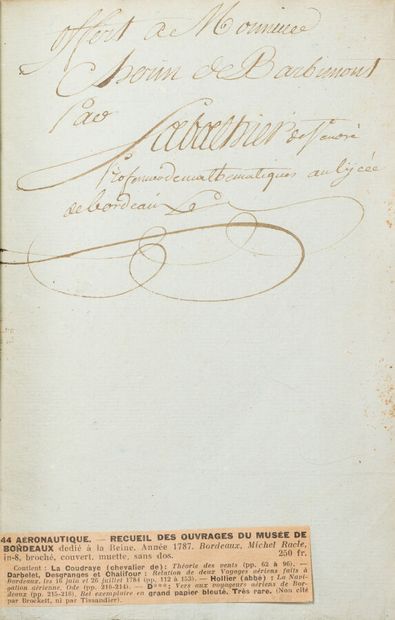 offert a Monsieur
de Barbimont
Par
Sabathier de St andré
Professeur de mathematiques au lycée
de bordeaux
44 AÉRONAUTIQUE. — RECUEIL DES OUVRAGES DU MUSÉE DE
BORDEAUX dedié à la Reine. Année 1787. Bordeaux, Michel Racle,
in-8, broché, couvert. muette, sans dos. 250 fr.
Contient : La Coudraye (chevalier de) : Théorie des vents (pp. 62 à 96). —
Darbelet, Desgranges et Chalifour : Relation de deux Voyages aériens faits à
Bordeaux, les 16 juin et 26 juillet 1784 (pp. 112 à 153). — Hollier (abbé) : La Navi-
gation aérienne, Ode (pp. 210-214). — D*** : Vers aux voyageurs aériens de Bor-
deaux (pp. 215-216). Bel exemplaire en grand papier bleuté. Très rare. (Non cité
par Brockett, ni par Tissandier).